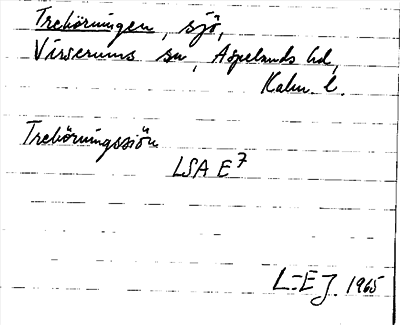 Trehörningen, sjö,
Virserums sn, Aspelands hd,
Kalm. l.
Trehörningssjön
LSA E7
L-E J. 1965